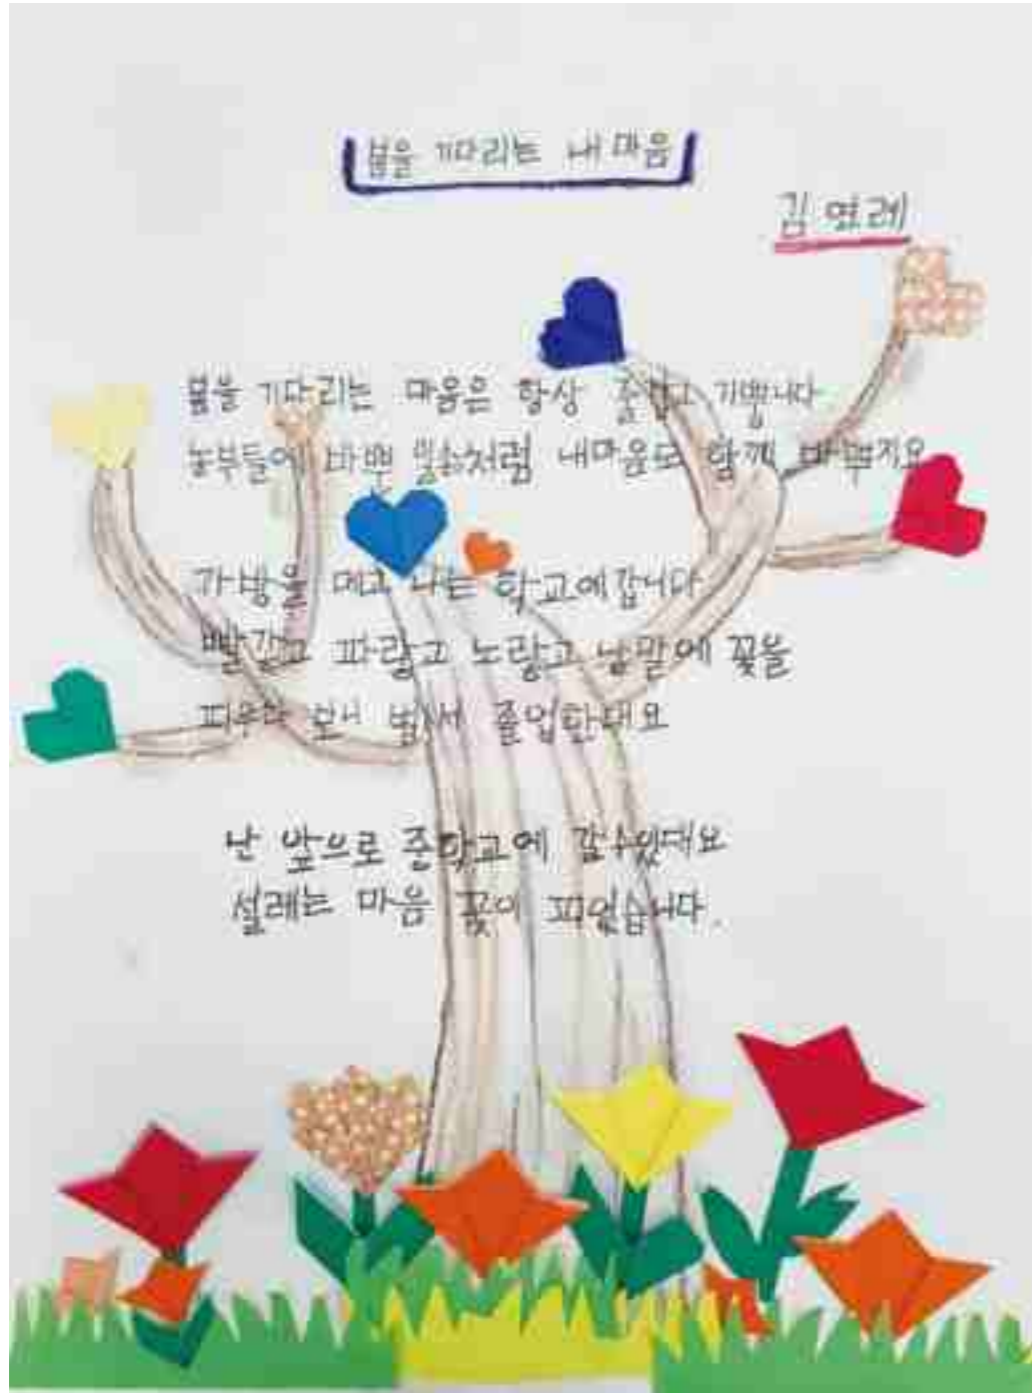 봄을 기다리는 내 마음
김영례
봄을 기다리는 마음은 항상 즐겁고 기쁩니다
농부들에 바쁜 일손처럼 내마음도 함께 바쁘지요
가방을 메고 나는 학교에갑니다
빨갛고 파랗고 노랗고 낱말에 꽃을
피우다 보니 벌써 졸업한대요
난 앞으로 중학교에 갈수있대요
설레는 마음 꽃이 피었습니다.